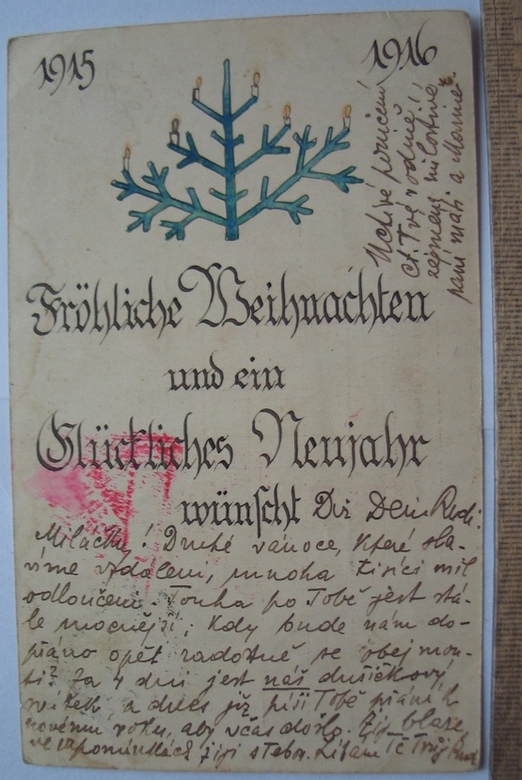 1915
1916
Uctivé poručení
ct. Tvé rodině!
zejména milostivé
paní mati a
Fröhliche Weihnachten
und ein
Glückliches Neujahr
wünscht Dir Dein Rudi.
Miláčku! Druhé vánoce, které sla-
víme vzdáleni, mnoha tisíci mil
odloučeni. Touha po Tobě jest stá-
le mocnější; kdy bude nám do-
přáno opět radostně se obejmou-
ti? Za 4 dni jest náš dušičkový
svátek a dnes již píši Tobě přání k
novému roku, aby včas došlo. Žij blaze,
ve vzpomínkách žiji s Tebou. Líbám Tě Tvůj Rudi